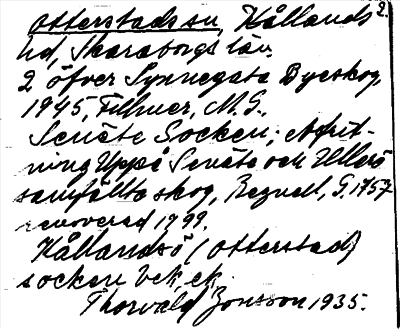 Otterstads sn, Kållands 2.
hd, Skaraborgs län.
2 öfver Synnegata Byeskog,
1945, Fillmer, M. G.,
Senäte Socken; Afrit-
ning Uppå Senäte och Ullerö
samfällta skog, Regnell, G. 1757
renoverad 1799.
Kållandsö (Otterstad)
socken
Thorvald Jonsson 1935.